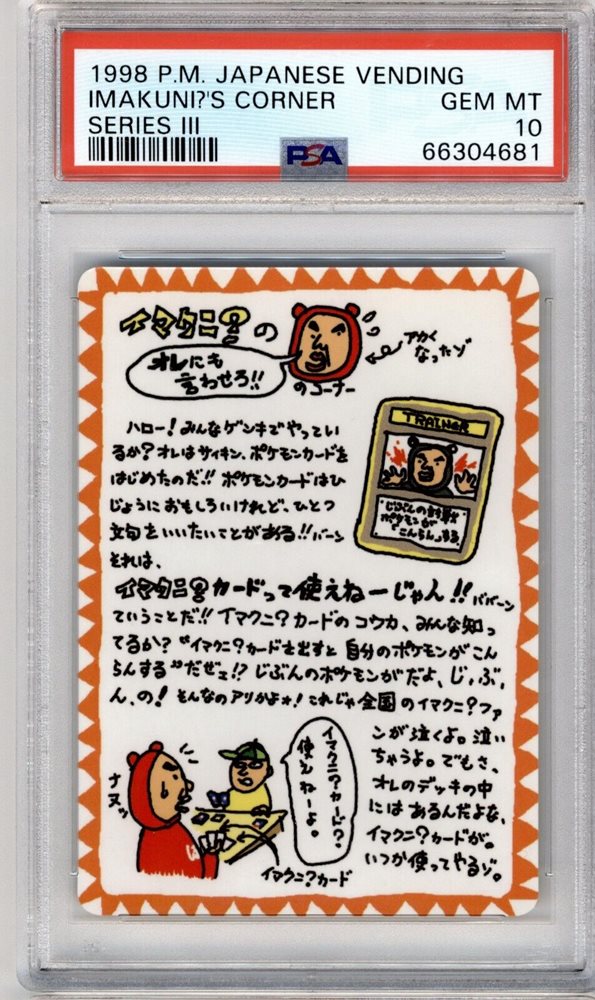 1998 P.M. JAPANESE VENDING
IMAKUNI?'S CORNER GEM MT
SERIES III 10
PSA 66304681
イマクニ?の
オレにも
言わせろ!!
のコーナー
アカく
なったゾ
TRAINER
じぶんの対戦
ポケモンが
"こんらん"する。
ハロー!みんなゲンキでやってい
るか?オレはサイキン、ポケモンカードを
はじめたのだ!!ポケモンカードはひ
じょうにおもしろいけれど、ひとつ
文句をいいたいことがある!!バーン
それは、
イマクニ?カードって使えねーじゃん!!ババーン
ていうことだ!!イマクニ?カードのコウカ、みんな知っ
てるか?"イマクニ?カードを出すと自分のポケモンがこん
らんする"だぜェ!?じぶんのポケモンがだよ、じ,ぶ,
ん、の!そんなのアリかよォ!これじゃ全国のイマクニ?ファ
ンが泣くよ。泣い
ちゃうよ。でもさ、
オレのデッキの中
にはあるんだよな、
イマクニ?カードが。
いつか使ってやるゾ。
ナヌッ
イマクニ?カード?
使えねーよ。
イマクニ?カード